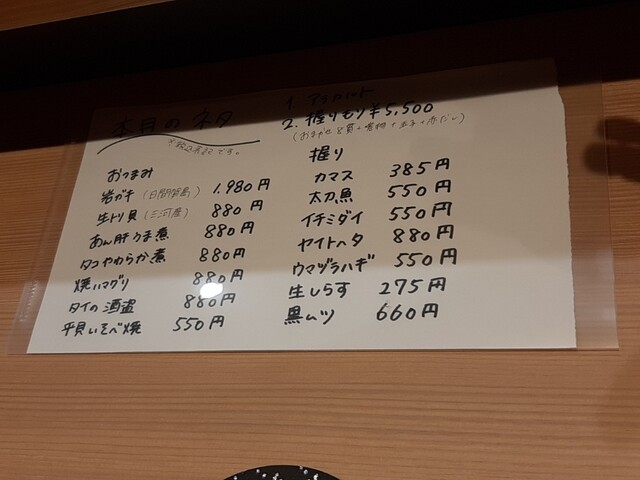 本日のネタ
※税込表記です。
おつまみ
岩ガキ(日間賀島) 1.980円
生トリ貝(三河産) 880円
あん肝うま煮 880円
タコやわらか煮 880円
焼ハマグリ 880円
タイの酒盗 880円
平貝いそべ焼 550円
1. アラカルト
2. 握りもり ¥5,500
(おまかせ8貫+巻物+玉子+赤だし)
握り
カマス 385円
太刀魚 550円
イチミダイ 550円
ヤイトハタ 880円
ウマヅラハギ 550円
生しらす 275円
黒ムツ 660円